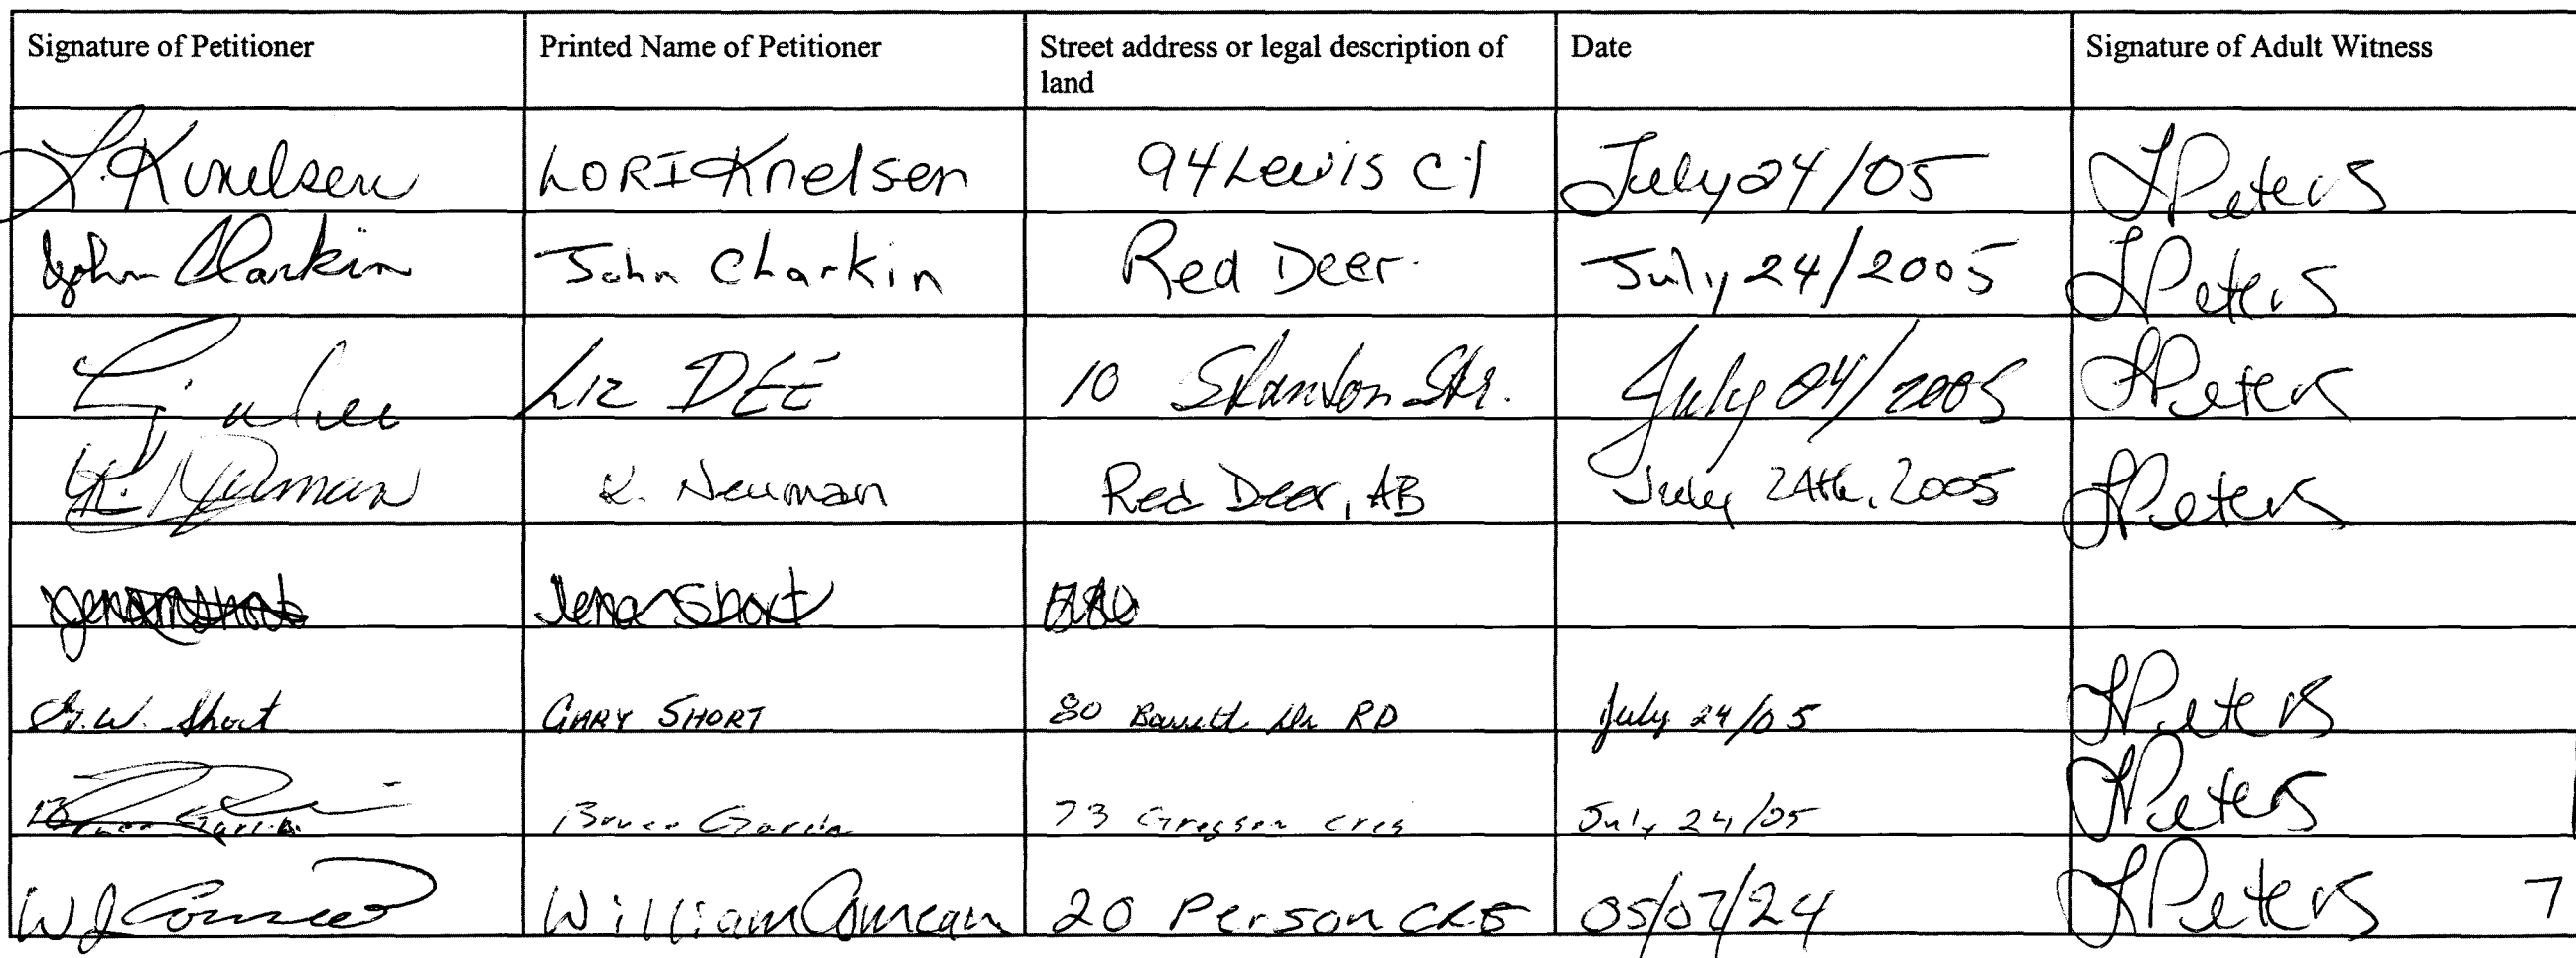 Signature of Petitioner Printed Name of Petitioner Street address or legal description of land Date Signature of Adult Witness
L. Knelsen LORI Knelsen 94 Lewis Cl July 24/05 LPeters
John Charkin John Charkin Red Deer. July 24/2005 LPeters
Liz DEE 10 Stanton Str. July 24/2005 LPeters
K. Neuman K. Neuman Red Deer, AB July 24th, 2005 LPeters
Jena Short
G.W. Short GARY SHORT 80 Barrett Dr RD July 24/05 LPeters
Bruce Garcia 73 Gregson cres July 24/05 LPeters
William Comeau 20 Person CRES 05/07/24 LPeters 7